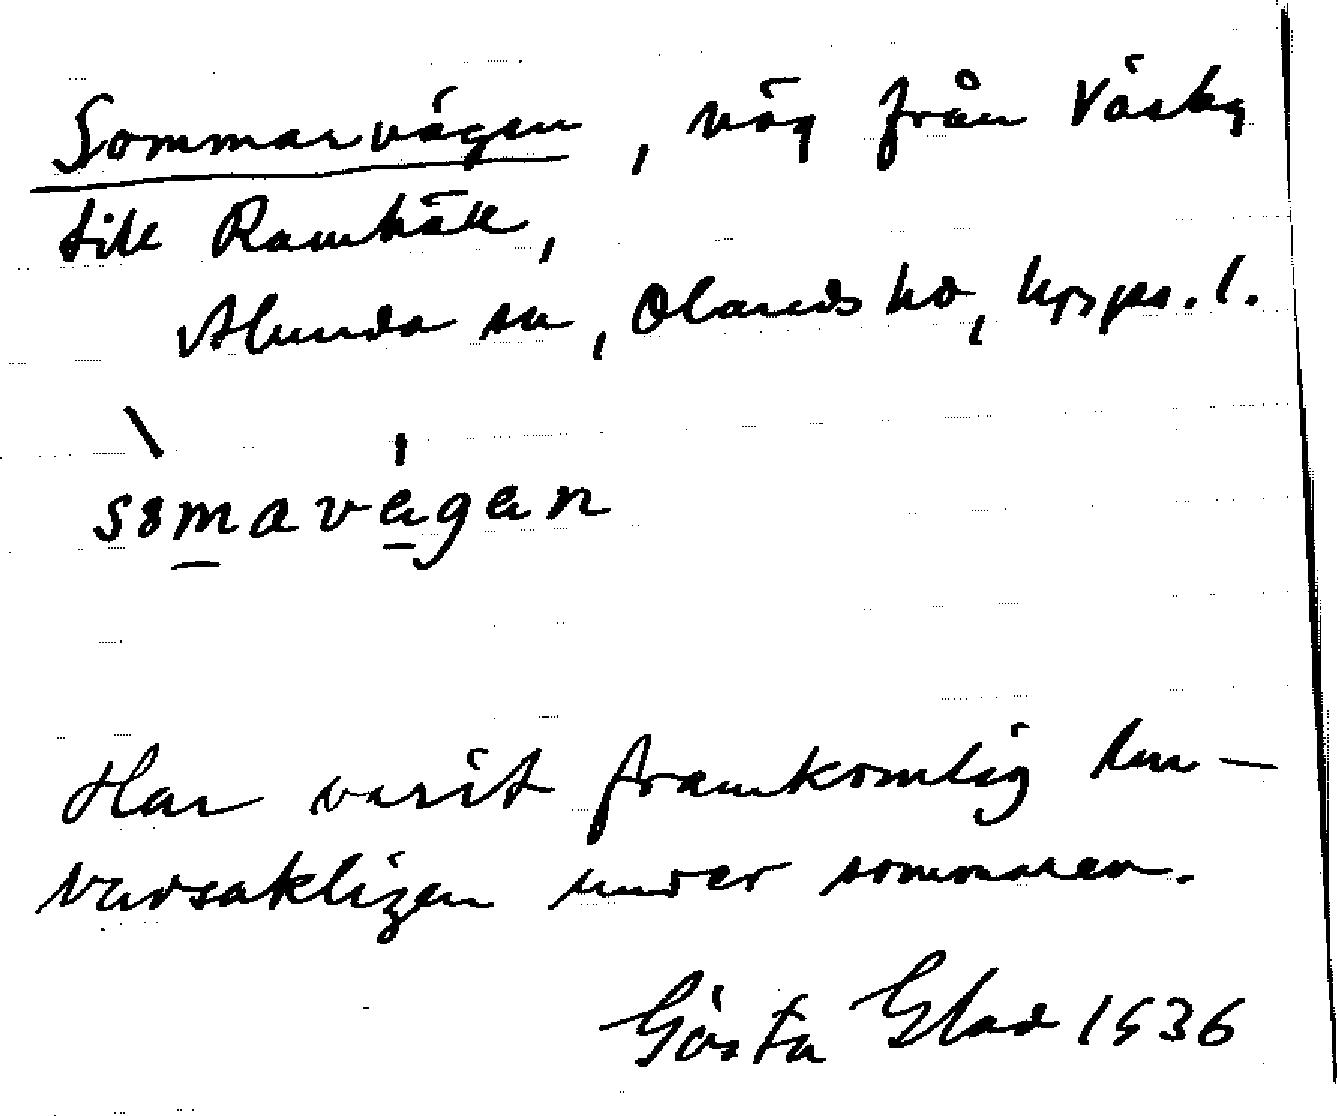 Sommarvägen, väg från Väsby
till Ramhäll,
Alunda sn, Olands hd, Upps. l.
Har varit framkomlig hu-
vudsakligen under sommaren.
Gösta Glad 1936